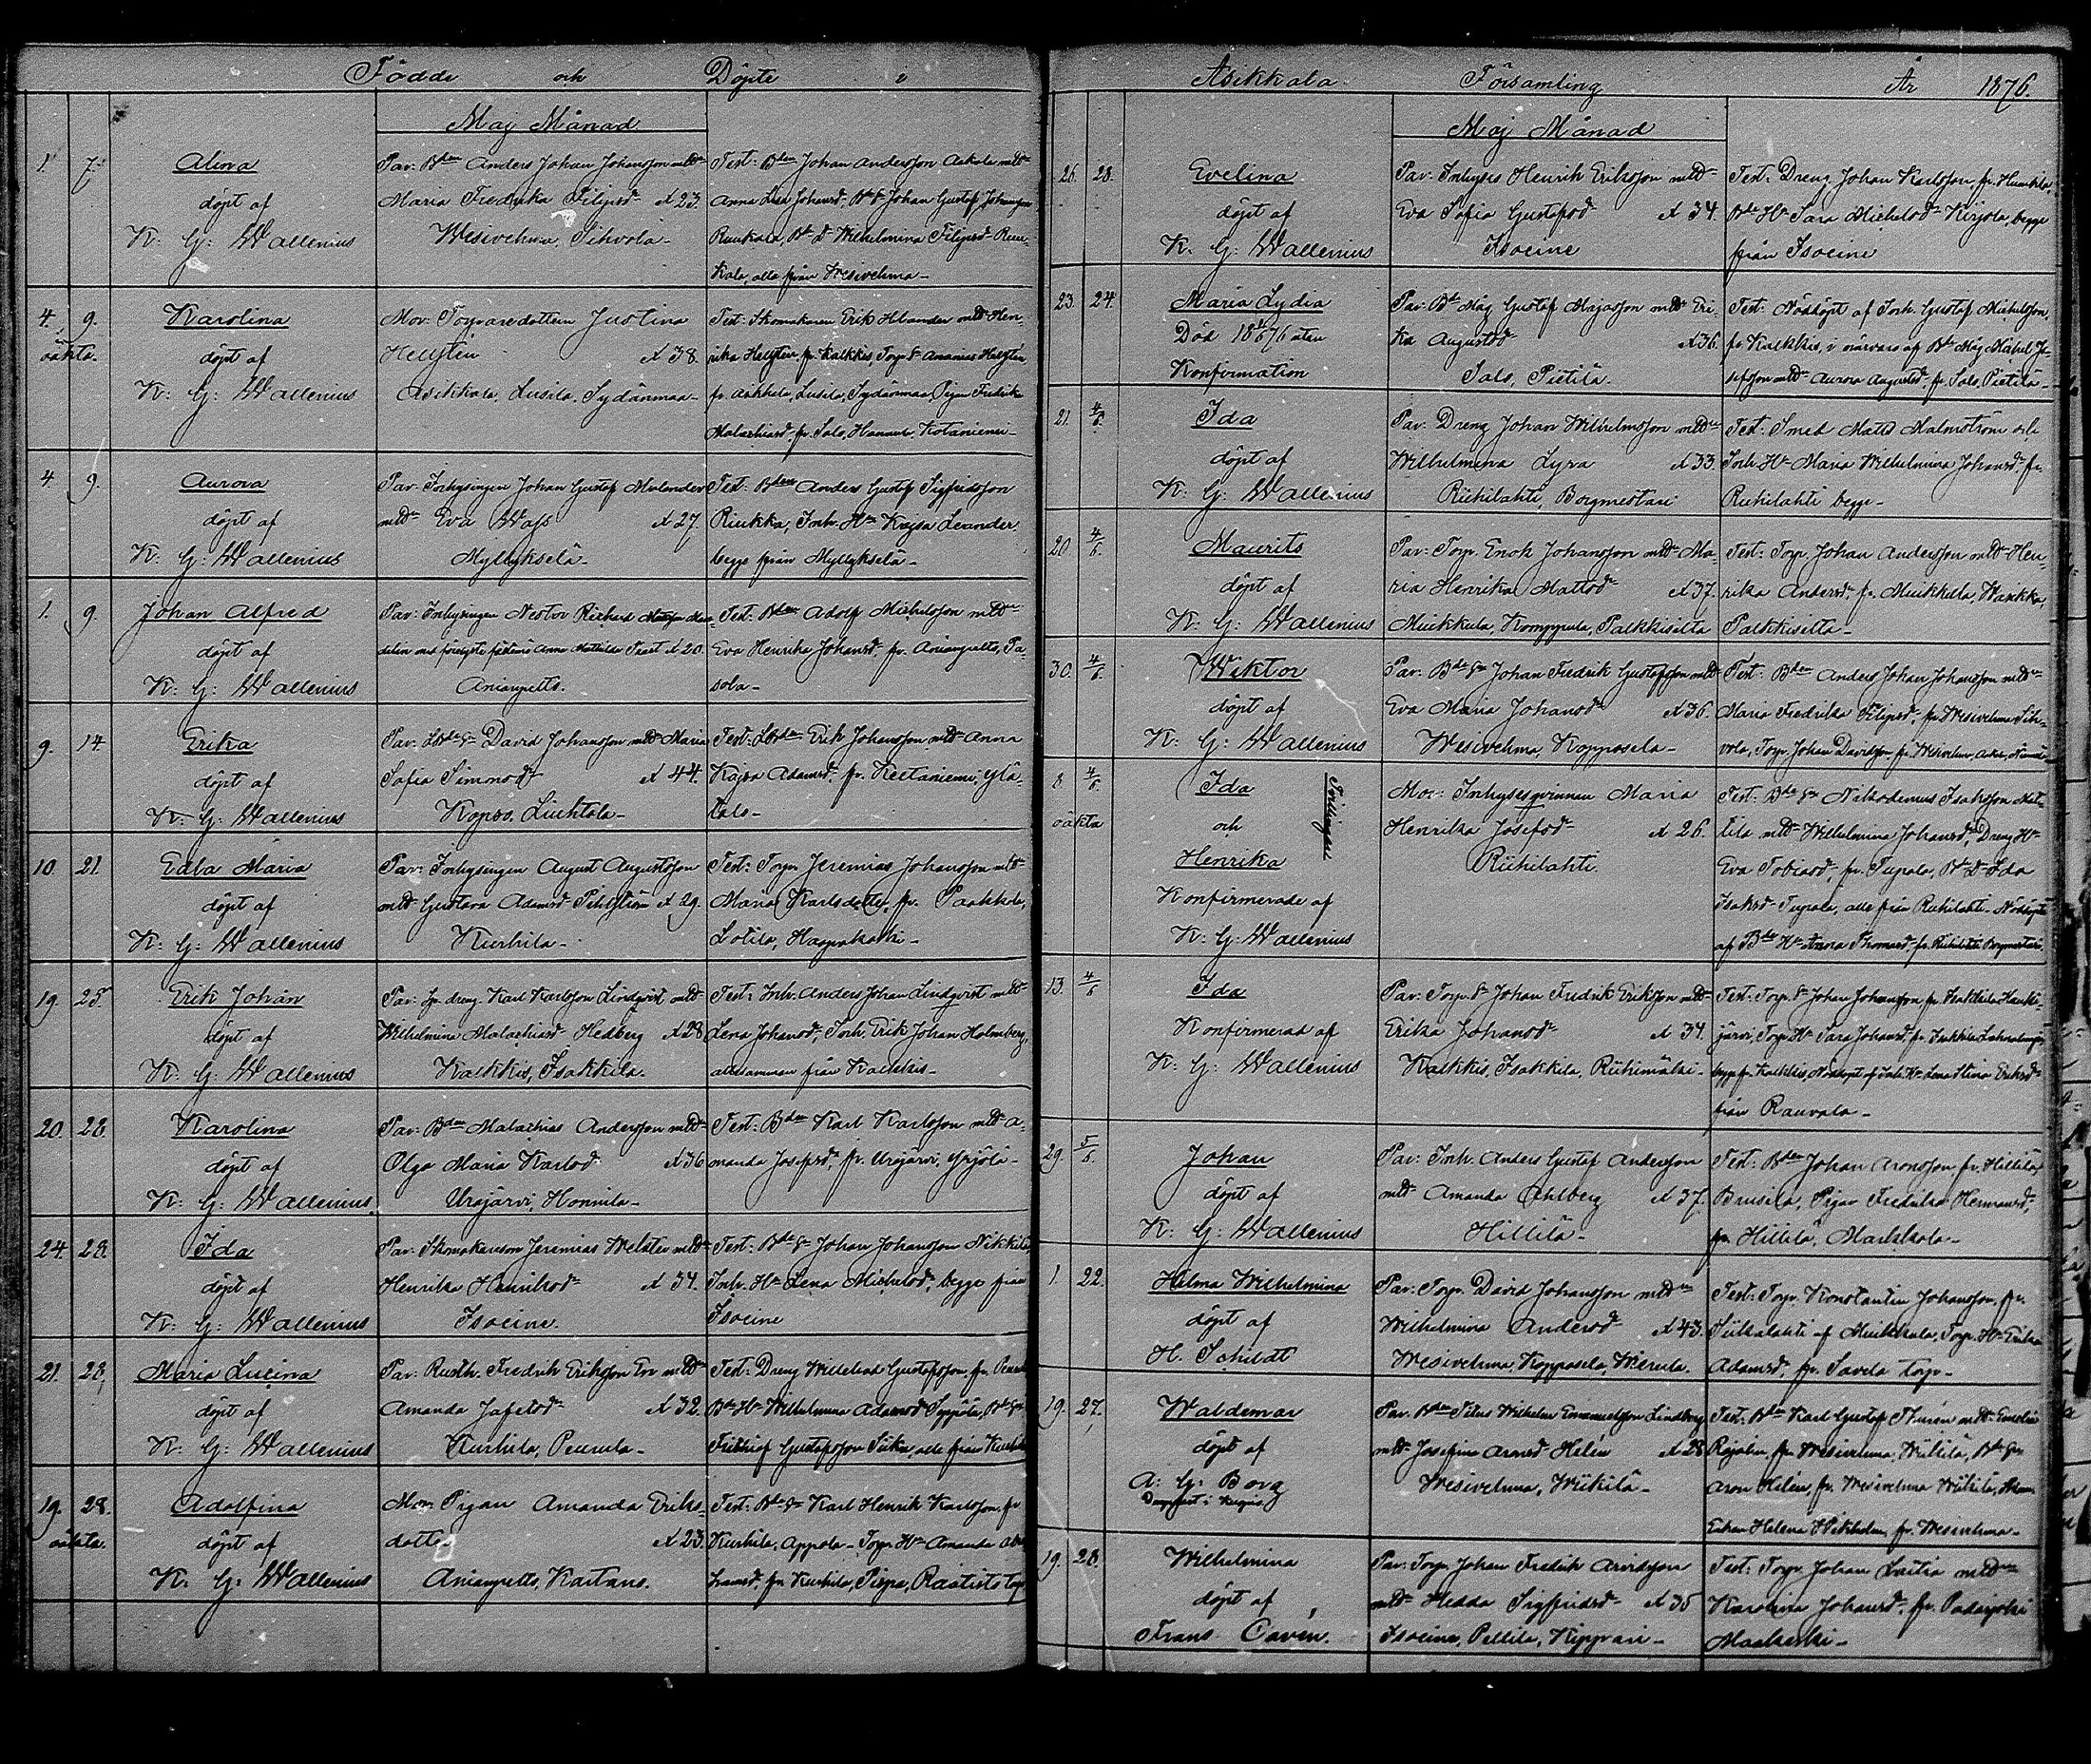 Födde och Döpte i
Maj Månad
1. 7. Alina
döpt af
K: G: Wallenius
Par: Bden Anders Johan Johansson mdn
Maria Fredrika Filipsd. A 23.
Wesivehma, Sihvola-
Test: Bden Johan Andersson Askola mdn
Anna Lisa Johansd. Bds Johan Gustaf Johansson
Ruukala, Bd Wilhelmina Filipsd. Ruu-
kala, alla från Wesivehma-
4. 9. Karolina
oäkta. döpt af
K: G: Wallenius
Mor: Torparedottern Justina
Hellstén A 38.
Asikkala, Lusila, Sydänmaa-
Test: Skomakaren Erik mdn Hen-
rika Hellstén fr. Kalkkis, Torp. S. Ananias Hellstén
fr. Asikkala, Lusila, Sydänmaa, Pigan Fredrika
Malachiasd. fr. Salo, Kotaniemi-
4. 9. Aurora
döpt af
K: G: Wallenius
Par: Inhysingen Johan Gustaf Melander
mdn Eva Wass A 27.
Myllykselä-
Test: Bden Anders Gustaf Sigfridsson
Riukka, Inh. Hu Kajsa Leander
begge från Myllykselä-
1. 9. Johan Alfred
döpt af
K: G: Wallenius
Par: Inhysingen Nestor Richard
Anna Mathilda A 20.
Anianpelto.
Test: Bden Adolf Michelsson mdn
Eva Henrika Johansd. fr. Anianpelto, Ta-
sola-
9. 14 Erika
döpt af
K: G: Wallenius
Par: David Johansson mdn Maria
Sofia Simonsd. A 44.
Kopso, Liuhtola-
Test: Erik Johansson mdn Anna
Kajsa Adamsd. fr. Keltaniemi, Ylä-
talo-
10. 21. Edla Maria
döpt af
K: G: Wallenius
Par: Inhysingen August Augustsson
mdn Gustava Adamsd. Pihlström A 29.
Kurhila-
Test: Torpn Jeremias Johansson mdn
Maria Karlsdotter, fr. Paakkola,
Lotila, Haapakoski-
19. 25. Erik Johan
döpt af
K: G: Wallenius
Par: dreng Karl Karlsson Lindqvist mdn
Wilhelmina Malachiasd. Hedberg A 28
Kalkkis, Isakkila.
Test: Inh. Anders Johan Lindqvist mdn
Lena Johansd. Inh. Erik Johan Holmberg,
allesamman från Kalkkis-
20. 28. Karolina
döpt af
K: G: Wallenius
Par: Bden Malachias Andersson mdn
Olga Maria Karlsd. A 36
Urajärvi, Honnila-
Test: Bden Karl Karlsson mdn A-
manda Josefsd. fr. Urajärvi, Yrjölä-
24. 28. Ida
döpt af
K: G: Wallenius
Par: Skomakaren Jeremias Welster mdn
Henrika Henriksd. A 34.
Isoeine.
Test: Bds Johan Johansson Nikkilä
Inh. Hu Lena Michelsd. begge från
Isoeine
21. 28. Maria Lucina
döpt af
K: G: Wallenius
Par: Rusth. Fredrik Eriksson Ero mdn
Amanda Jafetsd. A 32.
Kurhila, Peurula-
Test: Dreng Willehad Gustafsson, fr.
Bds Hu Wilhelmina Adamsd. Seppälä, Bds
Fridhiof Gustafsson Siuko, alla från Kurhila
19. 28. Adolfina
oäkta. döpt af
K: G: Wallenius
Mor: Pigan Amanda Eriks-
dotter A 23.
Anianpelto, Kaitans.
Test: Bds Karl Henrik Karlsson, fr
Kurhila, Appola- Torp. Hu Amanda Abra-
hamsd. fr. Kurhila, Raatisto torp
Asikkala Församling År 1876.
Maj Månad
26. 28. Evelina
döpt af
K: G: Wallenius
Par: Inhyses Henrik Eriksson mdn
Eva Sofia Gustafsd. A 34.
Isoeine
Test: Dreng Johan Karlsson, fr. Huukila,
Bds Hu Sara Michelsd. Kirjola, begge
från Isoeine
23. 24. Maria Lydia
Död 18 76 utan
Konfirmation
Par: Bds Måg Gustaf Majasson mdn Eri-
ka Augustsd. A 36.
Salo, Pietilä.
Test: Nöddöpt af Inh. Gustaf Michelsson
fr. Kalkkis, i närvaro af Bds Måg Mikael Jo-
sefsson mdn Aurora Augustsd. fr. Salo, Pietilä-
21. 4/6. Ida
döpt af
K: G: Wallenius
Par: Dreng Johan Wilhelmsson mdn
Wilhelmina Lyra A 33.
Riihilahti, Borgmestari
Test: Smed Matts Malmström och
Inh. Hu Maria Wilhelmina Johansd. fr.
Riihilahti begge-
20. 4/6. Maurits
döpt af
K: G: Wallenius
Par: Torp. Enok Johansson mdn Ma-
ria Henrika Mattsd. A 37.
Muikkula, Komppula, Palkkisilta
Test: Torp. Johan Andersson mdn Hen-
rika Andersd. fr. Muikkula, Warikka,
Palkkisilta-
30. 4/6. Wiktor
döpt af
K: G: Wallenius
Par: Bds Johan Fredrik Gustafsson mdn
Eva Maria Johansd. A 36.
Wesivehma, Kopposela-
Test: Bden Anders Johan Johansson mdn
Maria Fredrika Filipsd. fr. Wesivehma Sih-
vola, Torp. Johan Davidsson fr. Wesivehma,
8. 4/6. Ida
oäkta och
Henrika
Tvillingar
Konfirmerade af
K: G: Wallenius
Mor: Inhysesqvinnan Maria
Henrika Josefsd. A 26.
Riihilahti.
Test: Bds Nikodemus Isaksson Mat-
tila mdn Wilhelmina Johansd. Dreng Hu
Eva Tobiasd. fr. Tupala, Bd Ida
Isaksd. Tupala, alla från Riihilahti- Nöddöpte
af Bds Hu Anna Thomasd. fr. Riihilahti Borgmestari
13. 4/6 Ida
Konfirmerad af
K: G: Wallenius
Par: Torp. S. Johan Fredrik Eriksson mdn
Erika Johansd. A 34.
Kalkkis, Isakkila, Riihimäki-
Test: Torp. S. Johan Johansson fr. Isakkila Hauki-
järvi, Torp. Hu Sara Johansd. fr. Isakkila
begge fr. Kalkkis, Nöddöpt af Inh. Hu Lena Stina Eriksd.
från Rauvala-
29. 5/6. Johan
döpt af
K: G: Wallenius
Par: Inh. Anders Gustaf Andersson
mdn Amanda Ahlberg A 37.
Hillilä-
Test: Bden Johan Aronsson fr. Hillilä
Brusila, Pigan Fredrika Hermansd.
fr. Hillilä, Markkola-
1. 22. Hilma Wilhelmina
döpt af
H. Schildt
Par: Torp. David Johansson mdn
Wilhelmina Andersd. A 43.
Wesivehma, Kopposela, Wierula.
Test: Torp. Konstantin Johansson, fr.
Tiikalahti af Muikkula, Torp. Hu Erika
Adamsd. fr. Savela torp-
19. 27. Waldemar
döpt af
A: G: Borg
Par: Bden Titus Wilhelm Emanuelsson Lindberg
mdn Josefina Aronsd. Helén A 28
Wesivehma, Wiikilä-
Test: Bden Karl Gustaf Thurén mdn Emelie
fr. Wesivehma, Wiikilä, Bds
Aron Helén, fr. Wesivehma Wiikilä,
Helena Wikholm fr. Wesivehma-
19. 28. Wilhelmina
döpt af
Frans Cavén.
Par: Torp. Johan Fredrik Arvidsson
mdn Hedda Sigfridsd. A 35
Isoeine, Pellila, Kippari-
Test: Torp. Johan Lastia mdn
Karolina Johansd. fr. Padasjoki
Maakeski-